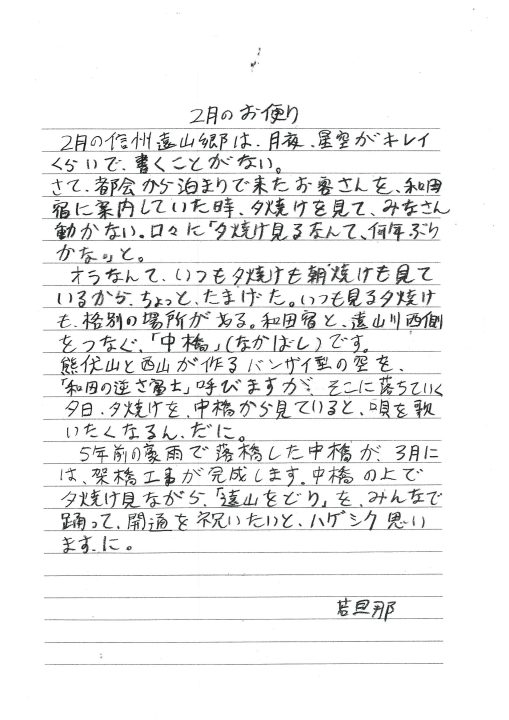 2月のお便り
2月の信州遠山郷は、月夜、星空がキレイ
くらいで、書くことがない。
さて、都会から泊まりで来たお客さんを、和田
宿に案内していた時、夕焼けを見て、みなさん
動かない。口々に「夕焼け見るなんて、何年ぶり
かな。」と。
オラなんて、いつも夕焼けも朝焼けも見て
いるから、ちょっと、たまげた。いつも見る夕焼け
も、格別の場所がある。和田宿と、遠山川西側
をつなぐ、「中橋」(なかばし)です。
熊伏山と西山が作るバンザイ型の空を、
「和田の逆さ富士」呼びますが、そこに落ちていく
夕日、夕焼けを、中橋から見ていると、唄を歌
いたくなるん、だに。
5年前の豪雨で落橋した中橋が、3月に
は、架橋工事が完成します。中橋の上で
夕焼け見ながら、「遠山をどり」を、みんなで
踊って、開通を祝いたいと、ハゲシク思い
ます、に。
若旦那